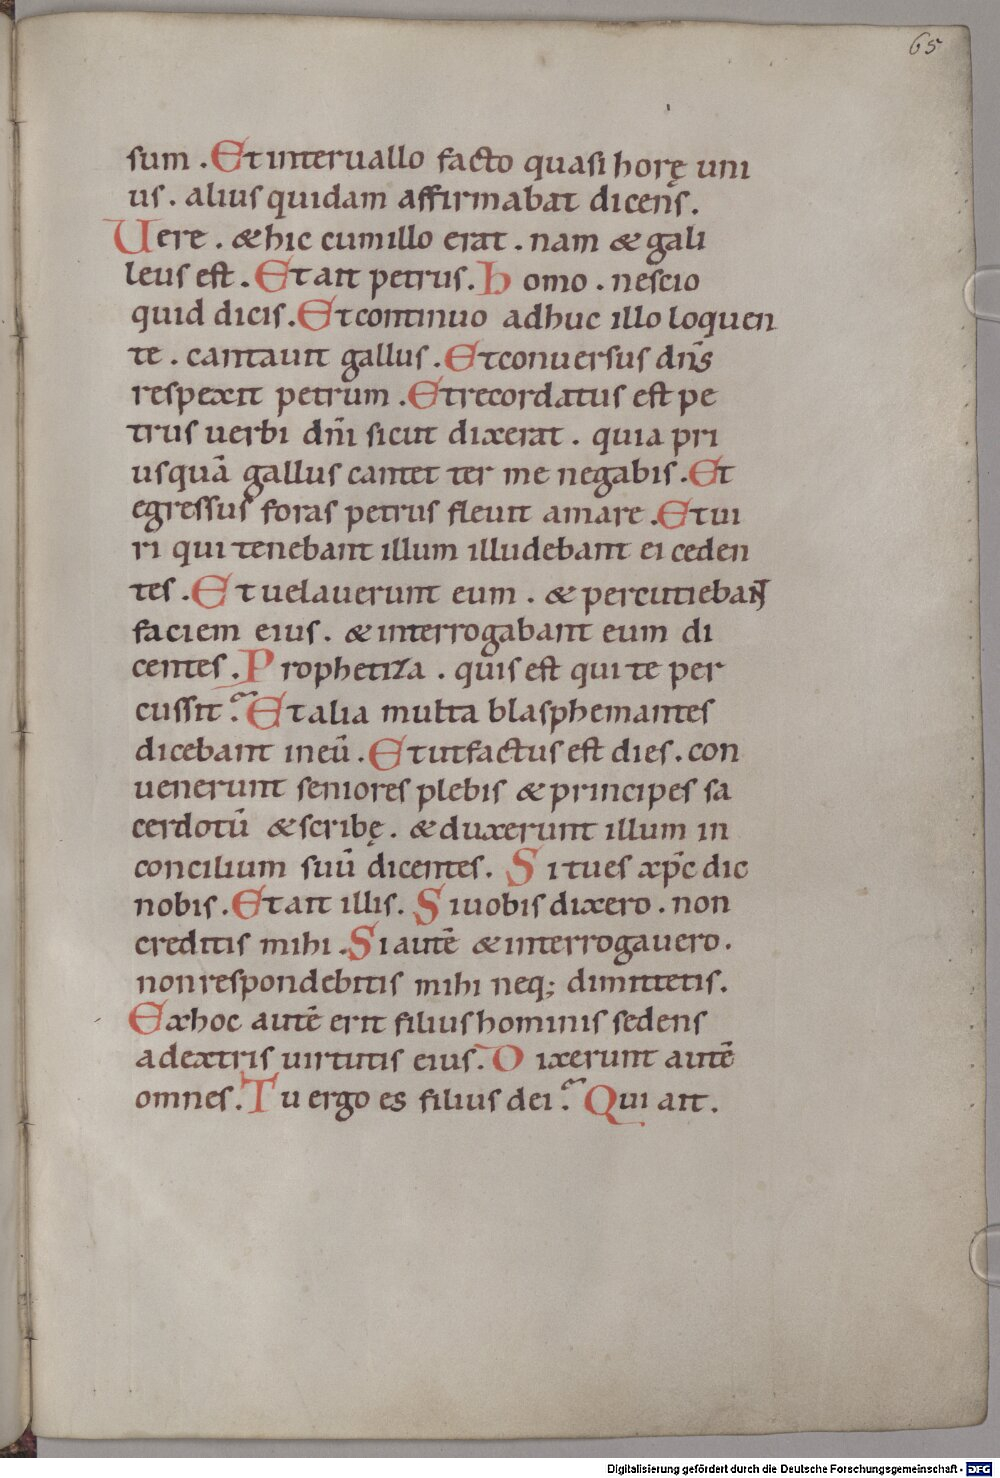 65
sum . Et interuallo facto quasi horę uni
us . alius quidam affirmabat dicens .
Uere . & hic cum illo erat . nam & gali
leus est . Et ait petrus . Homo . nescio
quid dicis . Et continuo adhuc illo loquen
te . cantauit gallus . Et conuersus dñs
respexit petrum . Et recordatus est pe
trus uerbi dñi sicut dixerat . quia pri
usquā gallus cantet ter me negabis . Et
egressus foras petrus fleuit amare . Et ui
ri qui tenebant illum illudebant ei ceden
tes . Et uelauerunt eum . & percutiebant
faciem eius . & interrogabant eum di
centes . Prophetiza . quis est qui te per
cussit ? Et alia multa blasphemantes
dicebant in eū . Et ut factus est dies . con
uenerunt seniores plebis & principes sa
cerdotū & scribę . & duxerunt illum in
concilium suū dicentes . Si tu es xp̄c dic
nobis . Et ait illis . Si uobis dixero . non
creditis mihi . Si autē & interrogauero .
non respondebitis mihi neq; dimittetis .
Ex hoc autē erit filius hominis sedens
a dextris uirtutis eius . Dixerunt autē
omnes . Tu ergo es filius dei ? Qui ait .
Digitalisierung gefördert durch die Deutsche Forschungsgemeinschaft - DFG